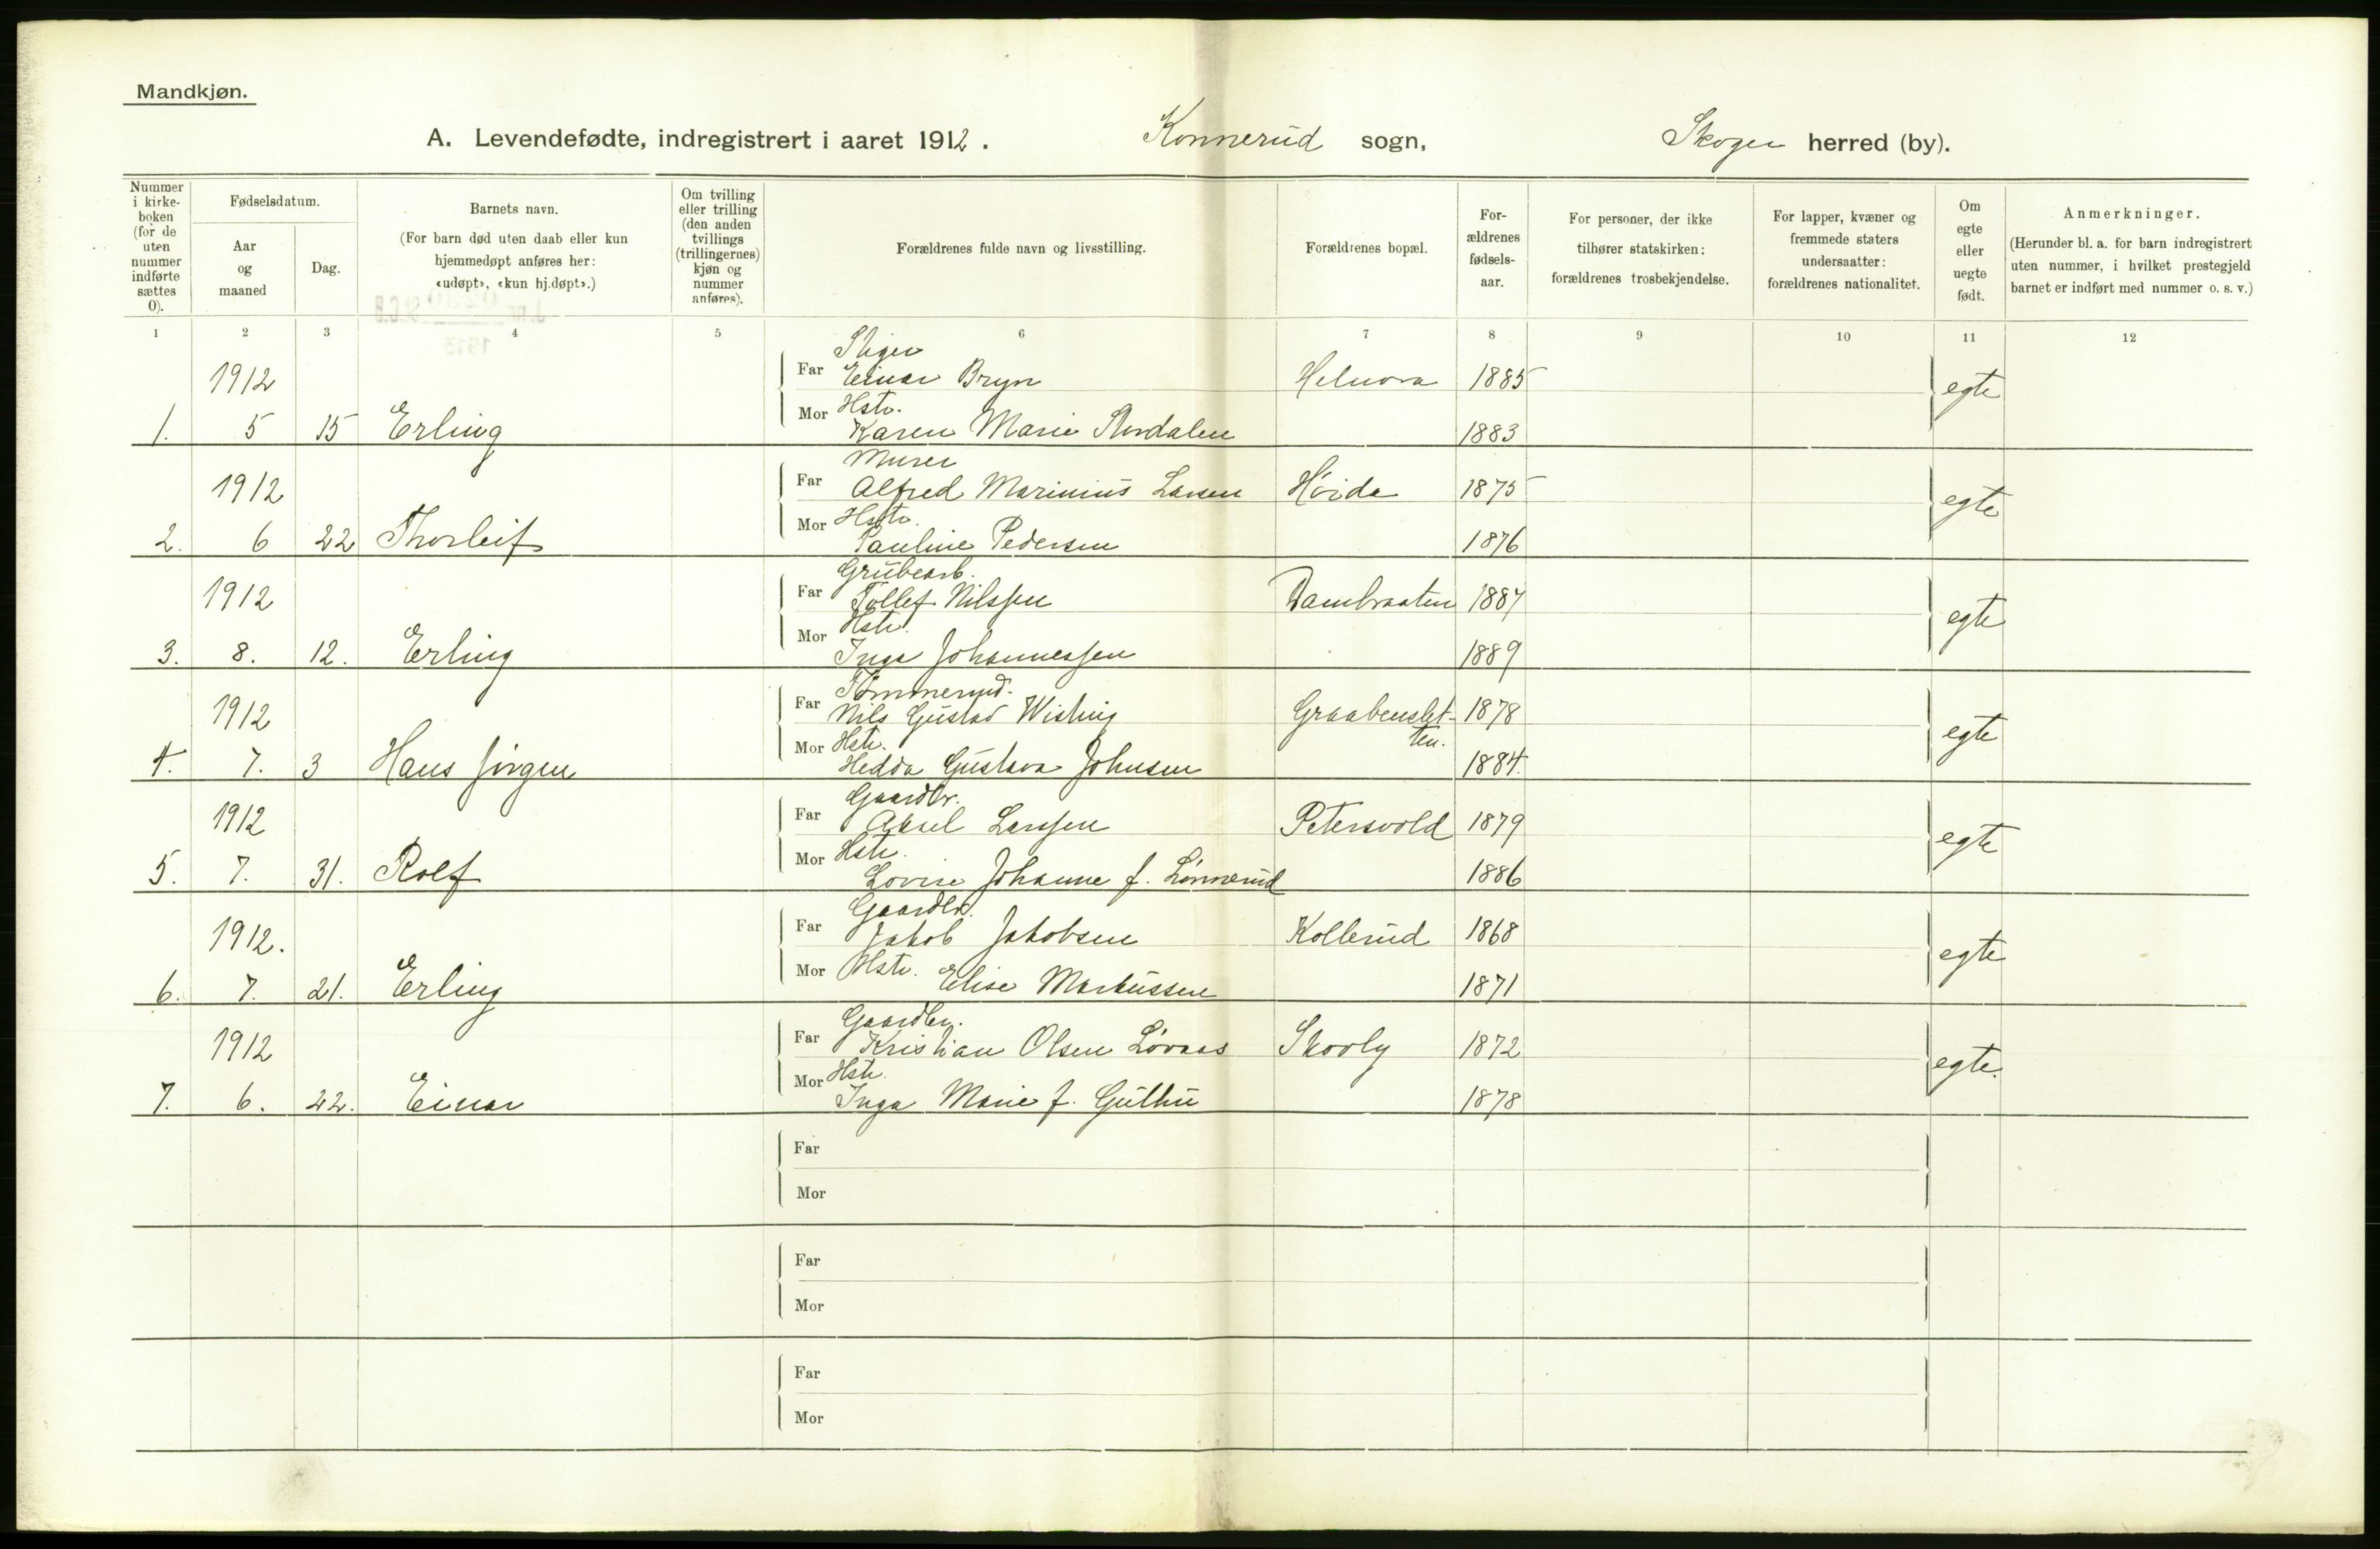 Mandkjøn.
A. Levendefødte, indregistrert i aaret 1912. Konnerud sogn, Skoger herred (by).
Nummer i kirke-boken (for de uten nummer indførte sættes 0).
Fødselsdatum.
Aar og maaned
Dag.
Barnets navn.
(For barn død uten daab eller kun hjemmedøpt anføres her: «udøpt», «kun hj.døpt».)
Om tvilling eller trilling (den anden tvillings (trillingernes) kjøn og nummer anføres).
Forældrenes fulde navn og livsstilling.
Forældrenes bopæl.
For-ældrenes fødsels-aar.
For personer, der ikke tilhører statskirken: forældrenes trosbekjendelse.
For lapper, kvæner og fremmede staters undersaatter: forældrenes nationalitet.
Om egte eller uegte født.
Anmerkninger.
(Herunder bl. a. for barn indregistrert uten nummer, i hvilket prestegjeld barnet er indført med nummer o. s. v.)
1 2 3 4 5 6 7 8 9 10 11 12
Stiger
1912 Far Einar Bryn 1885 egte
Mor Hstr.
1. 5 15 Erling Karen Marie Stordalen 1883
Murer
1912 Far Alfred Marinius Larsen Höida 1875 egte
Mor Hstr.
2. 6 22 Thorleif Pauline Pedersen 1876
Grubearb.
1912 Far Tollef Nilssen Dambraaten 1887 egte
Mor Hstr.
3. 8. 12. Erling Inga Johannessen 1889
Tömmermd.
1912 Far Nils Gustav Wisting Graabenslet- 1878 egte
Mor Hstr. ten.
4. 7. 3 Hans Jörgen Hedda Gustava Johnsen 1884.
Gaardbr.
1912 Far Aksel Larssen Petersvold 1879 egte
Mor Hstr.
5. 7. 31. Rolf Lovise Johanne f. Lönnerud 1886
Gaardbr.
1912. Far Jakob Jakobsen Kollerud 1868 egte
6. 7. 21. Erling Mor Hstr. Elise Markussen 1871
Gaardbr.
1912 Far Kristian Olsen Lövaas Skovly 1872 egte.
Mor Hstr.
7. 6. 22. Einar Inga Marie f. Gulhu 1878
Far
Mor
Far
Mor
Far
Mor